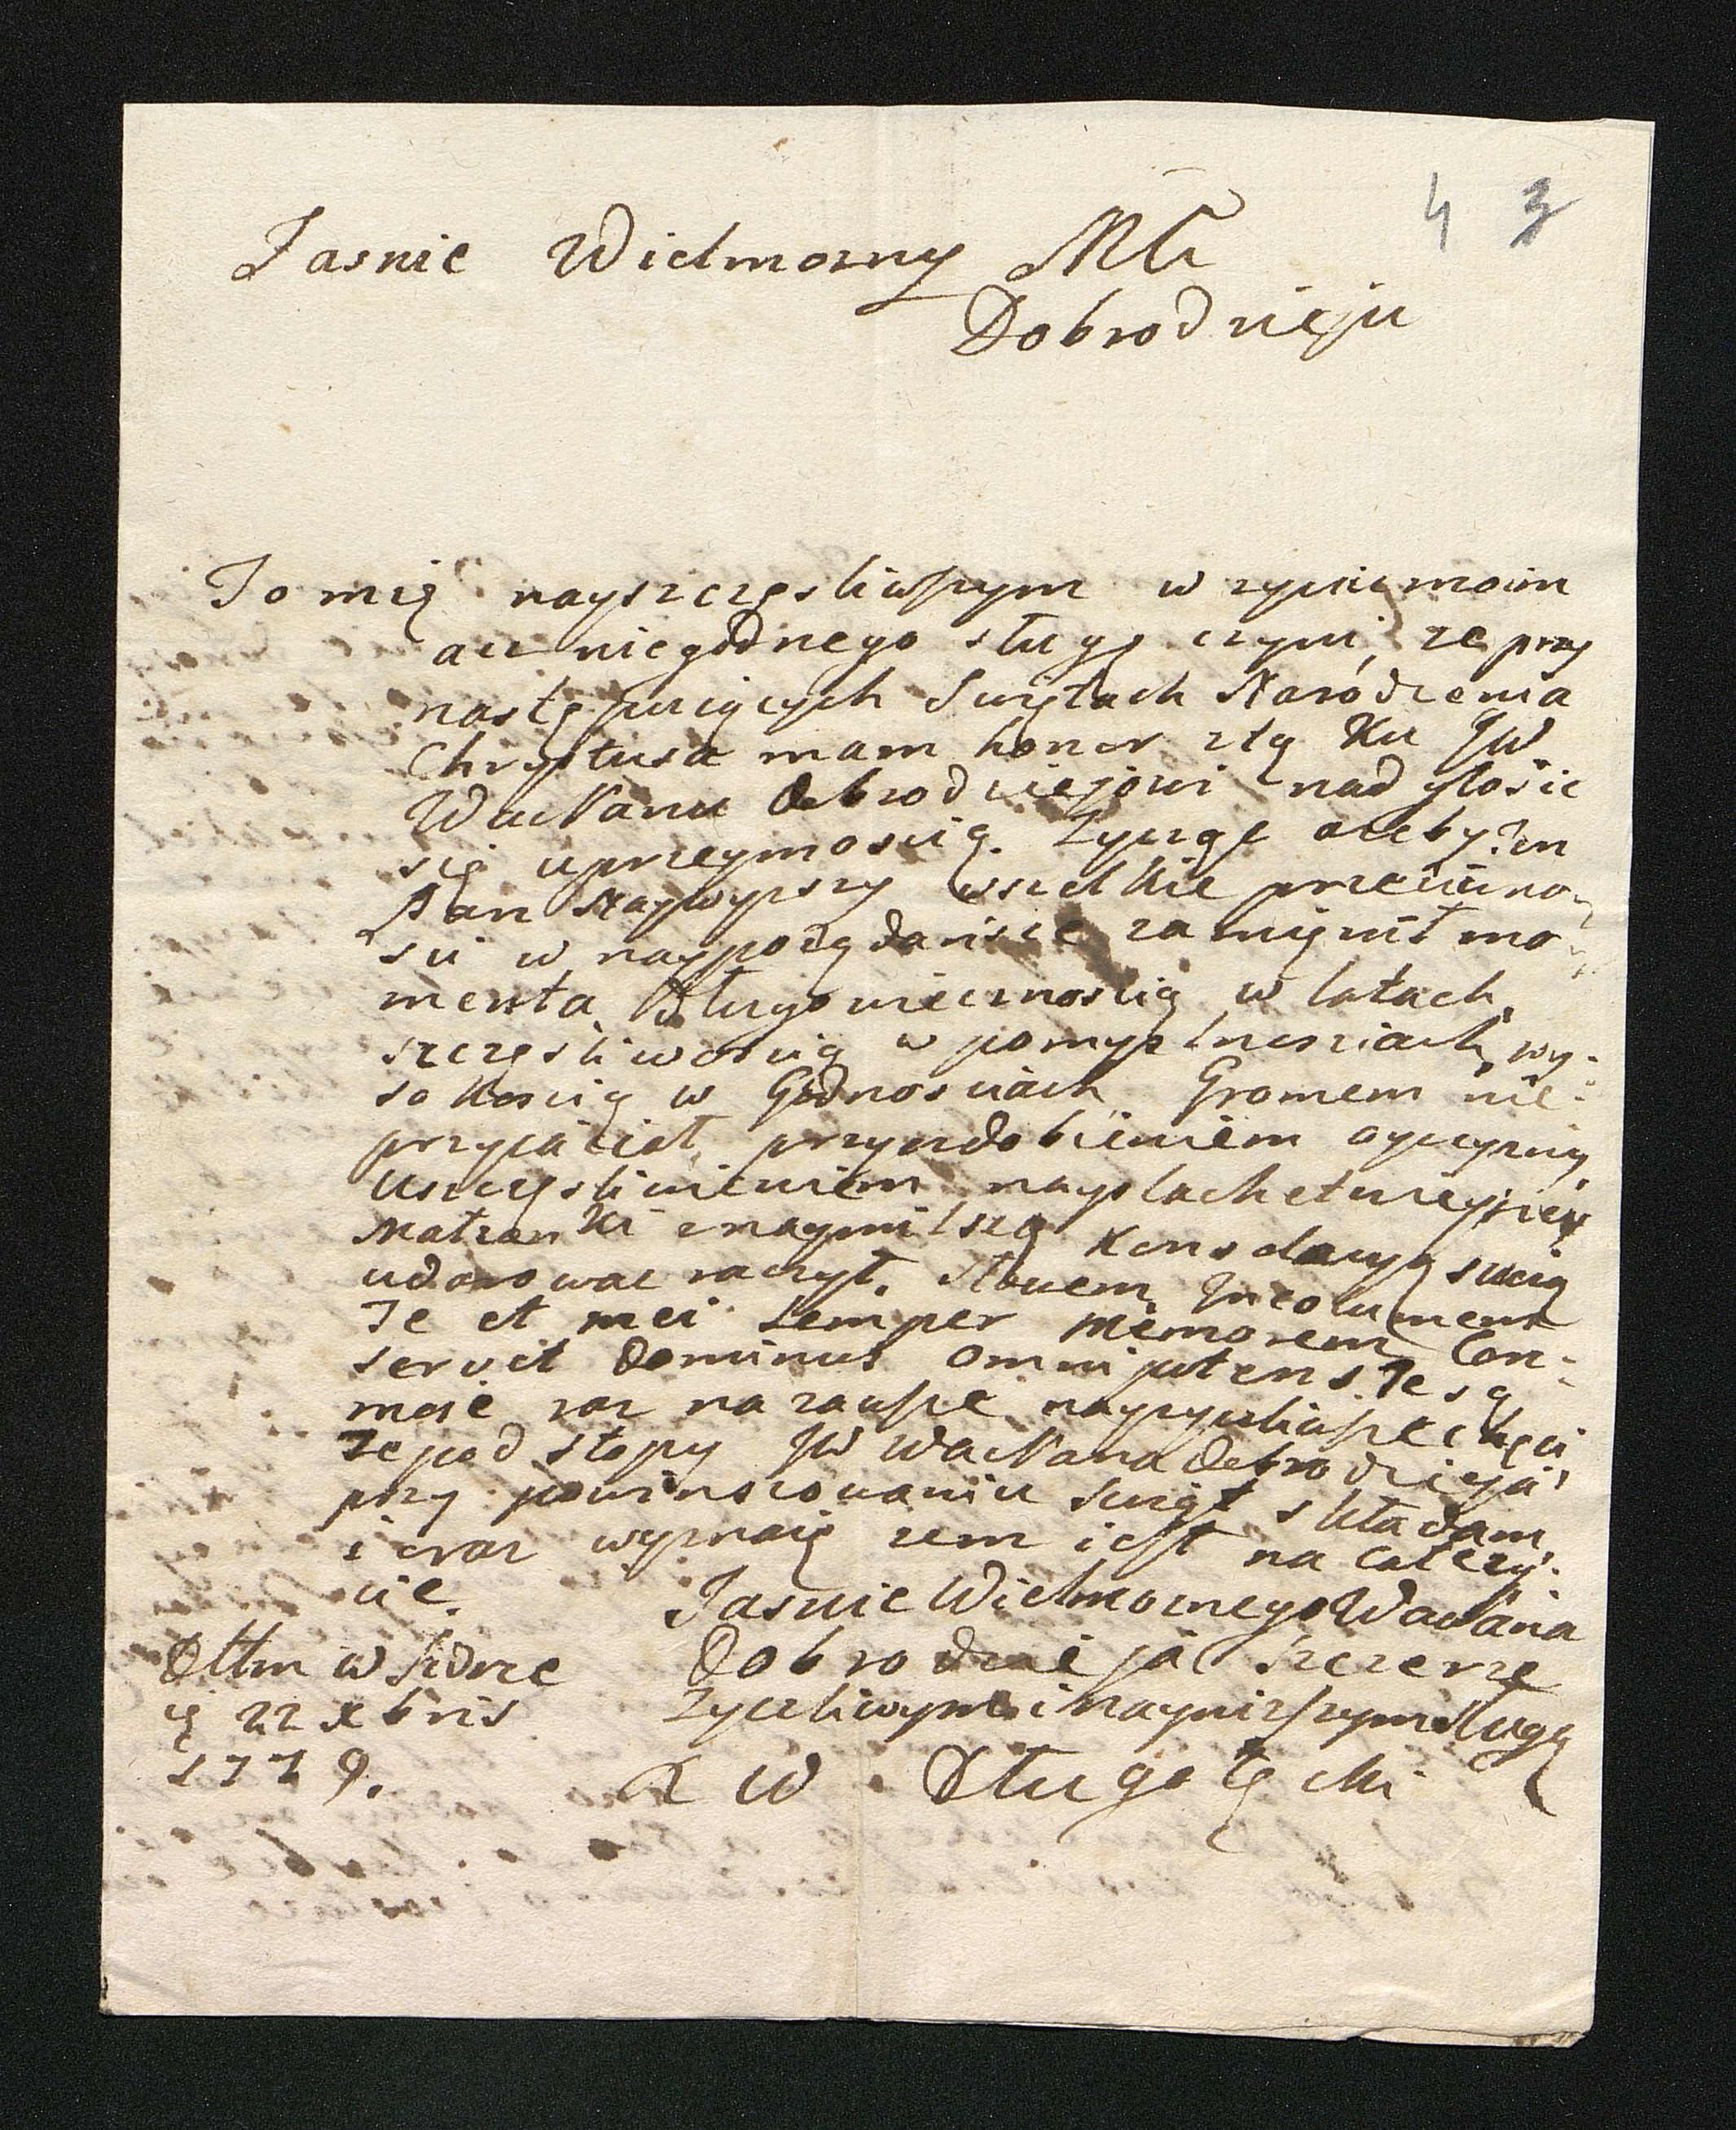 4 3
Jasnie Wielmozny Mci
Dobrodzieju
To mię nayszczęsliwszym w zyciu moim
acz niegodnego sługę czyni, ze przy
następuiących Swiętach Narodzenia
Chrystusa mam honor z tą Ku JW
WacPanu Dobrodziejowi nadgłosic
się uprzeymoscią. Zyczę azeby
Pan Naywyszy wszelkie przeciwno-
sci w naypożądańsze zamięnił mo-
menta Długowiecznoscią w latach,
szczęsliwoscią w pomyslnosciach, wy-
sokoscią w Godnosciach Gromem nie-
przyiacioł, przyozdobieniem oyczyzny
Uszczęsliwieniem nayslachetnieyszey
Małzonki z naymilszą Konsolacyą swoią
udarowac raczył. Słowem Incolumem
Te et mei semper memorem Con-
servet Dominus omnipotens. Te są
moie raz na zawsze nayzyczliwsze chęci
Te pod stopy JW WacPana Dobrodzieja
przy powinszowaniu Swiąt składam,
i oraz wyznaię zem iest na całe zy-
cie.
Jasnie Wielmoznego WacPana
Dobrodzieja Szczerze
zyczliwym i nayniszszym Sługą
Dttm w Sidrze
d 22 Xbris
1779.
R W Długołęcki